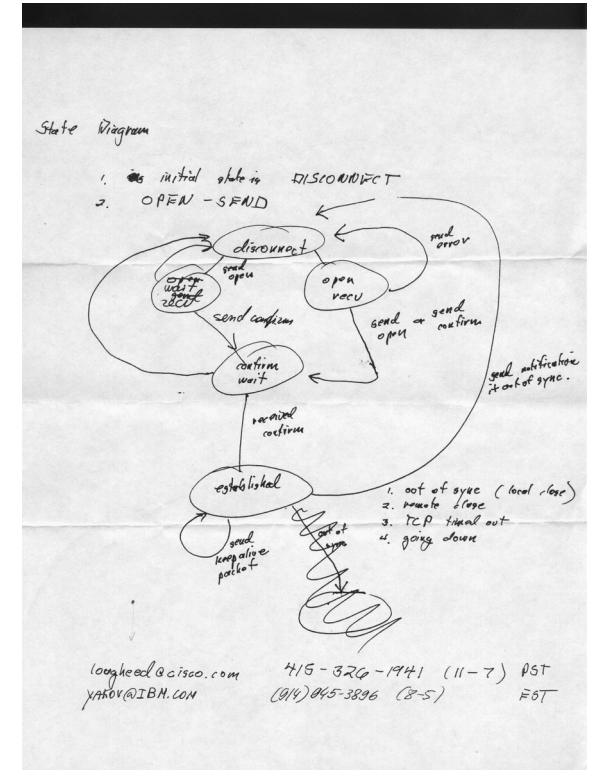 State Diagram
1. initial state is DISCONNECT
2. OPEN - SEND
disconnect
send error
send open
open
wait
send
recv
open recv
send confirm
send open or send confirm
confirm wait
send notification
if out of sync.
received confirm
established
1. out of sync (local close)
2. remote close
3. TCP timed out
4. going down
out of sync
send
keepalive
packet
lougheed@cisco.com 415-326-1941 (11-7) PST
YAKOV@IBM.COM (914)945-3896 (8-5) EST